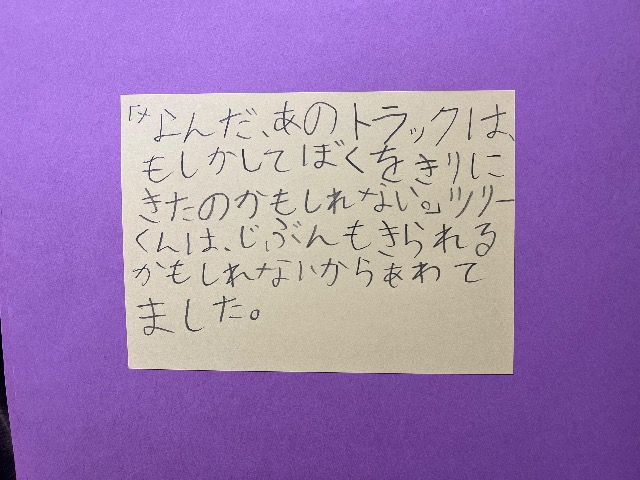 「なんだ、あのトラックは、
もしかしてぼくをきりに
きたのかもしれない。」ツリー
くんは、じぶんもきられる
かもしれないからあわて
ました。